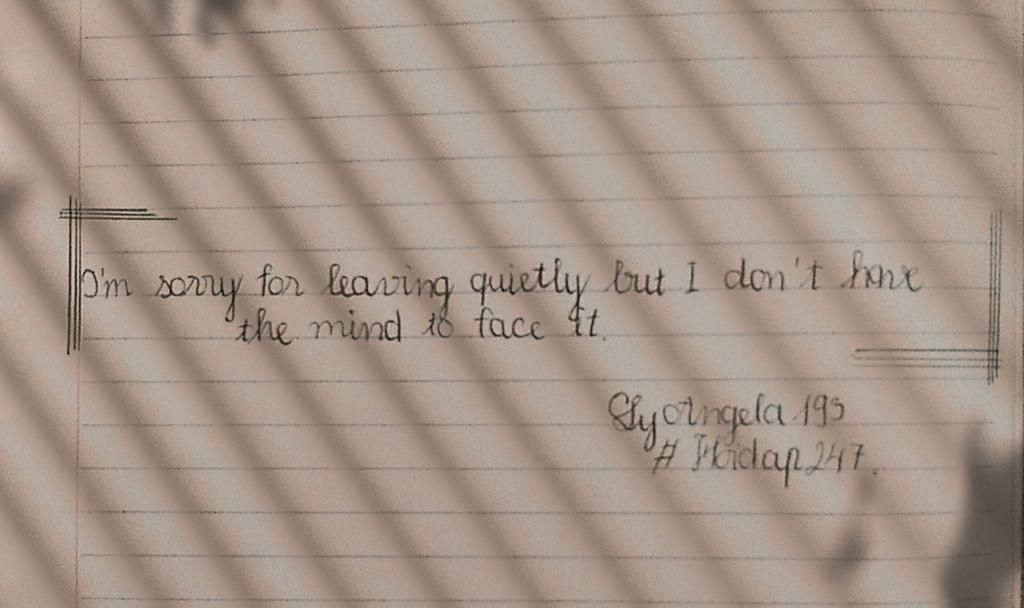 I'm sorry for leaving quietly but I don't have
the mind to face it.
SlyAngela 193
# 247.